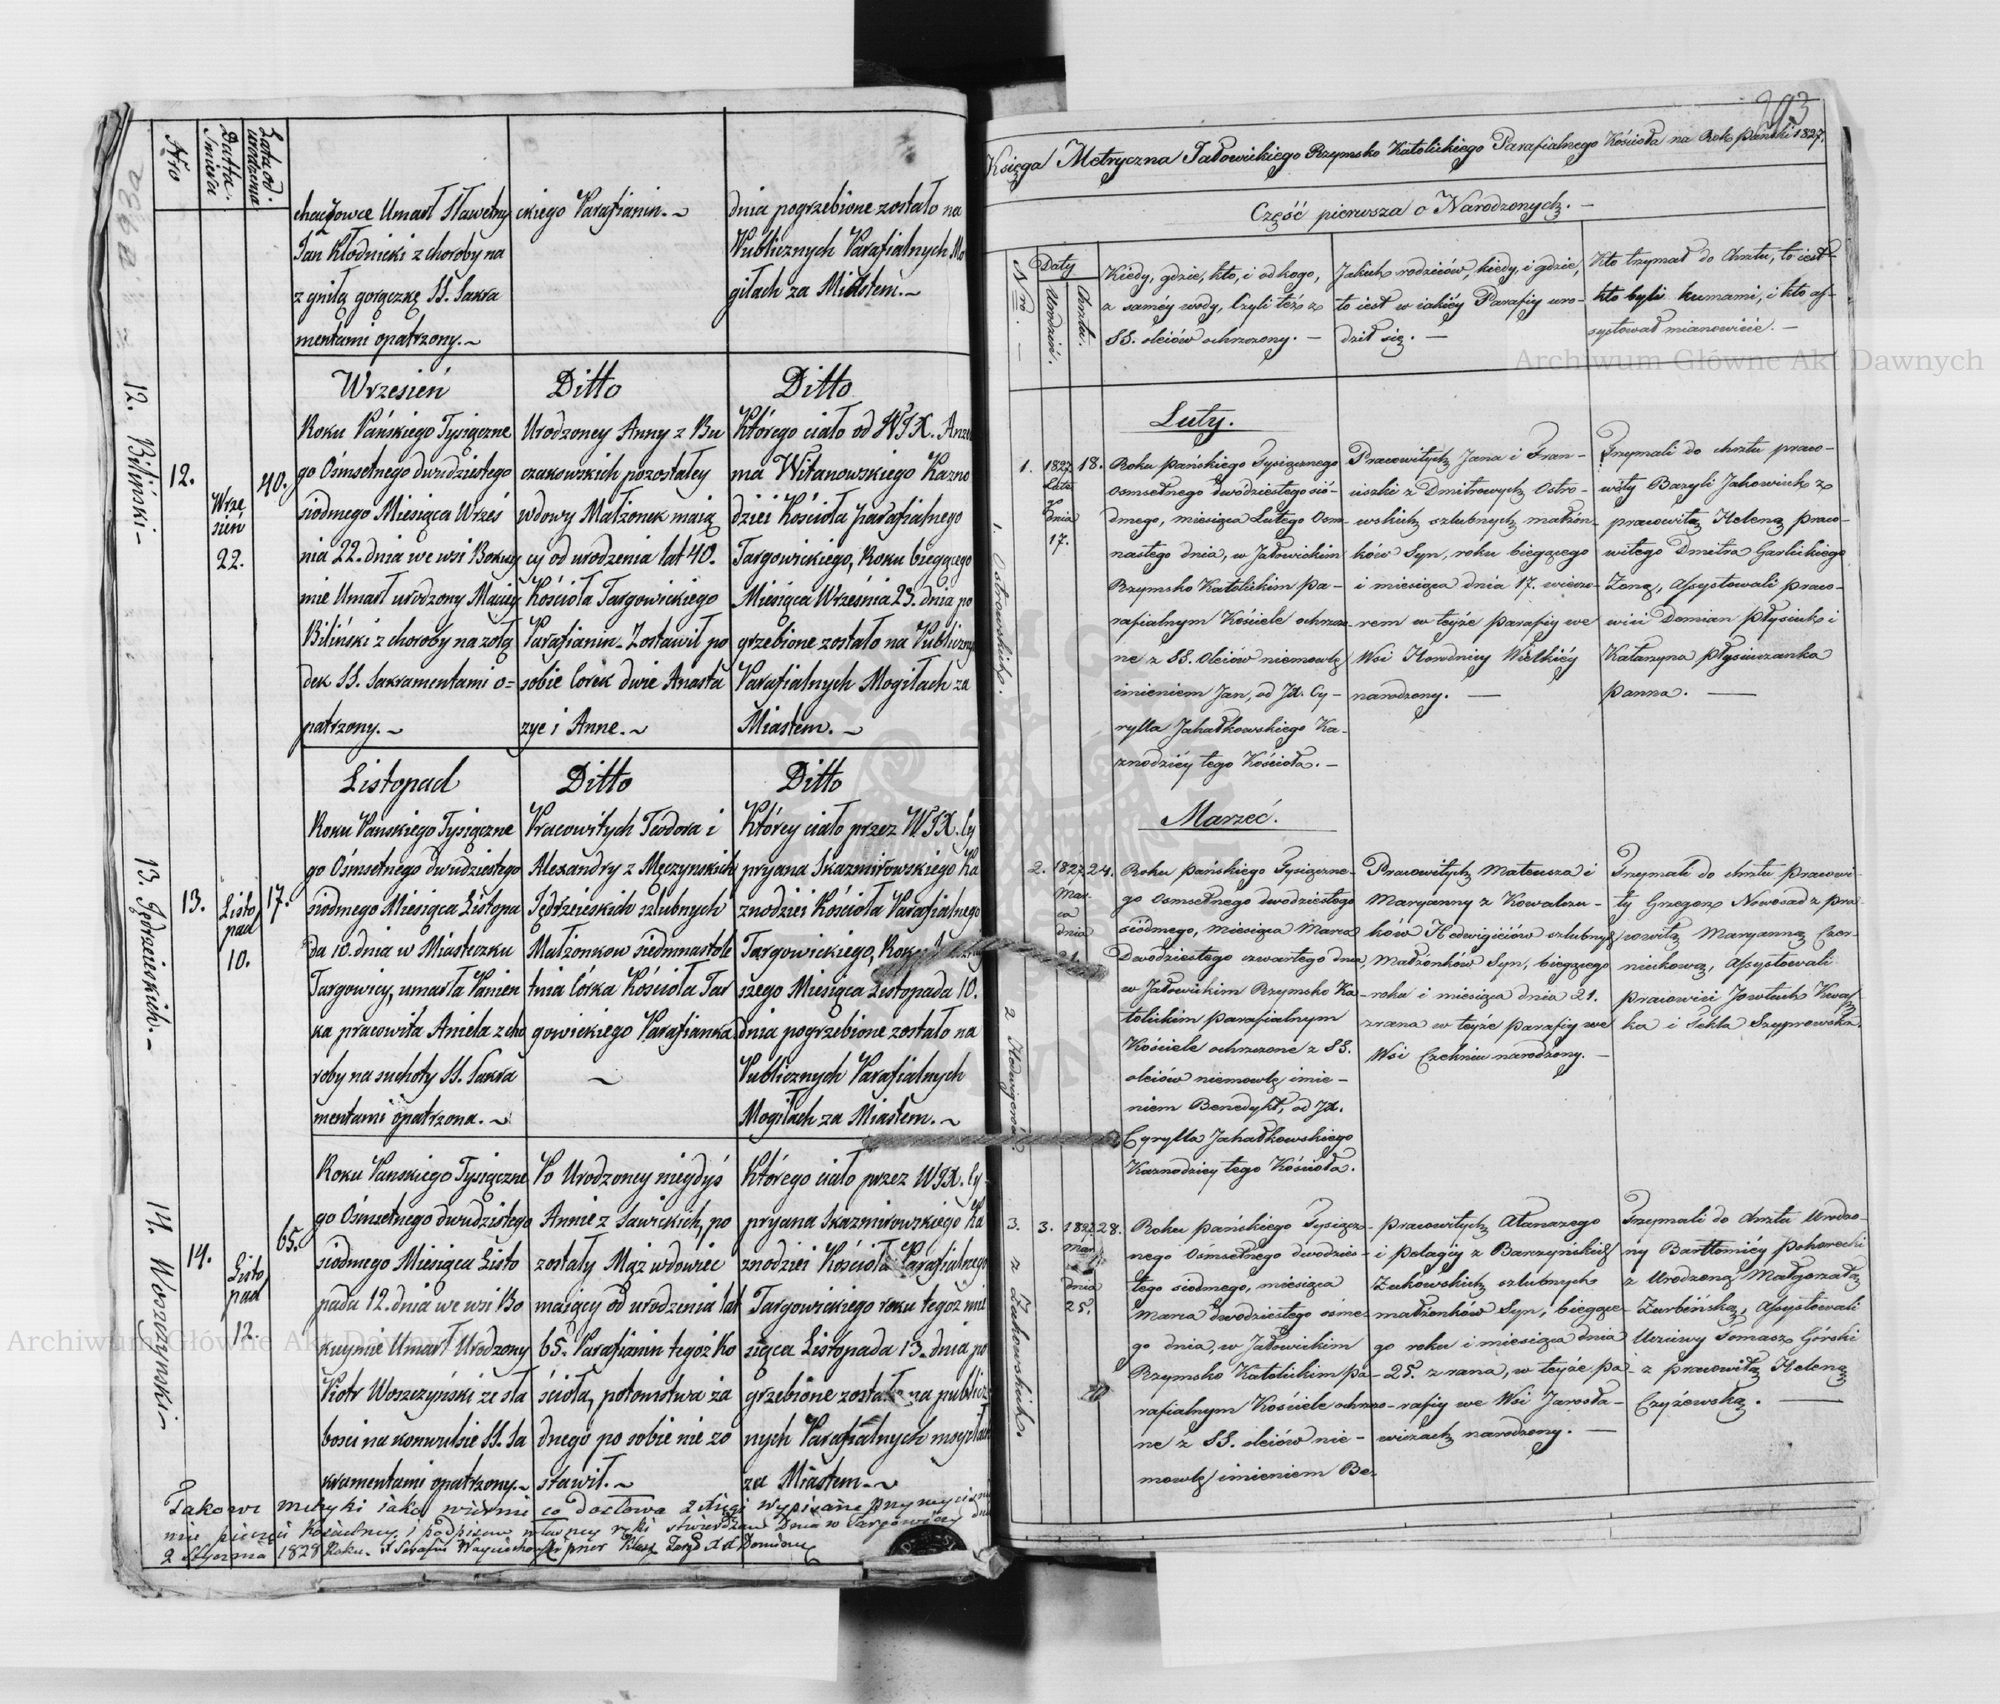 Nro
Datta Śmierci
Lata od urodzenia
chaczowce Umarł Sławetny
Jan Kłodnicki z choroby na
z gniłą gorączkę SS. Sakra
mentami opatrzony.~
ckiego Parafianin.~
dnia pogrzebione zostało na
Publicznych Parafialnych Mo
giłach za Miastem.~
12. Biliński.~
12.
Wrze
sień
22.
40.
Wrzesień
Roku Pańskiego Tysiączne
go Ośmsetnego dwudziestego
siodmego Miesiąca Wrześ
nia 22. dnia we wsi Bokuy
mie Umarł urodzony Maciey
Biliński z choroby na żołą
dek SS. Sakramentami o=
patrzony.~
Ditto
Urodzoney Anny z Bu
czakowskich pozostałey
wdowy Małżonek maią
cy od urodzenia lat 40.
Kościoła Targowickiego
Parafianin. Zostawił po
sobie Corek dwie Anasta
zye i Anne.~
Ditto
Którego ciało od WJX. Anzel
ma Witanowskiego Kazno
dziei Kościoła parafialnego
Targowickiego, Roku bieggcego
Miesiąca Września 23. dnia po
grzebione zostało na Publiczny
Parafialnych Mogiłach za
Miastem.~
13. Jędrzeieskich.~
13.
Listo
pad
10.
17.
Listopad
Roku Panskiego Tysiączne
go Ośmsetnego dwudziestego
siodmego Miesiąca Listopa
da 10. dnia w Miasteczku
Targowicy, umarła Panien
ka pracowita Aniela z cho
roby na suchoty SS. Sakra
mentami opatrzona.~
Ditto
Pracowitych Teodora i
Alexandry z Męczynskich
Jędrzeieskich szlubnych
Małżonkow siedmnastole
tnia Córka Kościoła Tar
gowickiego Parafianka
~
Ditto
Którey ciało przez WJX. Cy
pryana Skazmirowskiego Ka
znodziei Kościoła Parafialnego
Targowickiego, Roku
szego Miesiąca Listopada 10.
dnia pogrzebione zostało na
Publicznych Parafialnych
Mogiłach za Miastem.~
14. Woszczynski~
14.
Listo
pad
12.
65.
Roku Panskiego Tysiączne
go Ośmsetnego dwudziestego
siodmego Miesiąca Listo
pada 12. dnia we wsi Bo
kuymie Umarł Urodzony
Piotr Woszczyński ze sła
bosci na konwulsie SS. Sa
kramentami opatrzony.~
Po Urodzoney niegdyś
Annie z Sawickich, po
zostały Mąż wdowiec
maiący od urodzenia lat
65. Parafianin tegoż Ko
ścioła, potomstwa ża
dnego po sobie nie zo
stawił.~
Którego ciało przez WJX. Cy
pryana Skazmirowskiego Ka
znodziei Kościoła Parafialnego
Targowickiego roku tegoż mie
siąca Listopada 13. dnia po
grzebione zostało na publicz
nych Parafialnych mogiłach
za Miastem.~
Takowe metryki iako wiernie co do słowa z Xięgi wypisane przy wyciśnie
niu pieczęci Kościelney i podpisem własney ręki stwierdzam Dnia w Targowicy dnia
2 Stycznia 1828 Roku.
293
Księga Metryczna Jałowickiego Rzymsko Katolickiego Parafialnego Kościoła na Rok Pański 1827.
Część pierwsza o Narodzonych. —
Nr. —
Daty
Urodzeń.
Chrztu.
Kiedy, gdzie, kto, i od kogo,
z saméy wody, Czyli też z
SS. oleiów ochrzczony. —
Jakich rodziców, kiedy, i gdzie,
to iest w iakiéy Parafiy uro-
dził się. —
Kto trzymał do Chrztu, to iest
kto byli kumami, i kto as-
systował mianowicie. —
1. Ostrowskich.
1.
1827
Lute
go
dnia
17.
18.
Luty.
Roku Pańskiego Tysiącznego
Osmsetnego dwodziestego sió-
dmego, miesiąca Lutego Osm-
nastego dnia, w Jałowickim
Rzymsko Katolickim Pa-
rafialnym Kościele ochrzczo-
ne z SS. Oleiów niemowlę
imieniem Jan, od JX. Cy-
rylla Jahałkowskiego Ka-
znodziéy tego Kościoła. —
Pracowitych Jana i Fran-
ciszki z Dmitrowych Ostro-
wskich szlubnych małżon-
ków Syn, roku bieżącego
i miesiąca dnia 17. wieczo-
rem w teyże parafiy we
Wsi Howdnicy Wielkiéy
narodzony. —
Trzymali do chrztu praco-
wity Bazyli Jakowiuk z
pracowitą Heleną praco-
witego Dmitra Garlickiego
Żoną, Assystowali Praco-
wici Demian Płysiuk i
Katarzyna Płysiuczanka
Panna. —
2. Hedwigiców
2.
1827
Mar-
ca
dnia
21.
24.
Marzec.
Roku Pańskiego Tysiączne-
go Osmsetnego dwodziestego
siódmego, miesiąca Marca
Dwodziestego czwartego dnia,
w Jałowickim Rzymsko Ka-
tolickim Parafialnym
Kościele ochrzczone z SS.
oleiów niemowlę imie-
niem Benedykt, od JX.
Cyrylla Jahałkowskiego
Kaznodziey tego Kościoła.
Pracowitych Mateusza i
Maryanny z Kowalczu-
ków Hedwigiciów szlubnych
Małżonków Syn, bieżącego
roku i miesiąca dnia 21.
zrana w teyże parafiy we
Wsi Czekniu narodzony. —
Trzymali do chrztu Pracowi-
ty Grzegorz Nowosad z pra-
cowitą Maryanną Czer-
niukową, Assystowali
pracowici Jowtuch Kwas-
ka i Tekla Szyprowska.
3. z Żukowskich.
3.
1827
Mar
ca
dnia
25.
28.
Roku Pańskiego Tysiącz-
nego Ośmsetnego dwodzies-
tego siodmego, miesiąca
Marca dwodziestego ósme-
go dnia, w Jałowickim
Rzymsko Katolickim Pa-
rafialnym Kościele ochrzczo-
ne z SS. oleiów nie-
mowlę imieniem Be-
Pracowitych Atanazego
i Pelagiy z Barzyńskich
Żukowskich szlubnych
małżonków Syn, bieżące-
go roku i miesiąca dnia
25. z rana, w teyże Pa-
rafiy we Wsi Jarosła-
wiczach narodzony. —
Trzymali do Chrztu Urodzo-
ny Bartłomiéy Pohorecki
z Urodzoną Małgorzatą
Żurbińską, Assystowali
Uczciwy Tomasz Górski
z pracowitą Heleną
Czyżewską. —
Archiwum Główne Akt Dawnych
Archiwum Główne Akt Dawnych